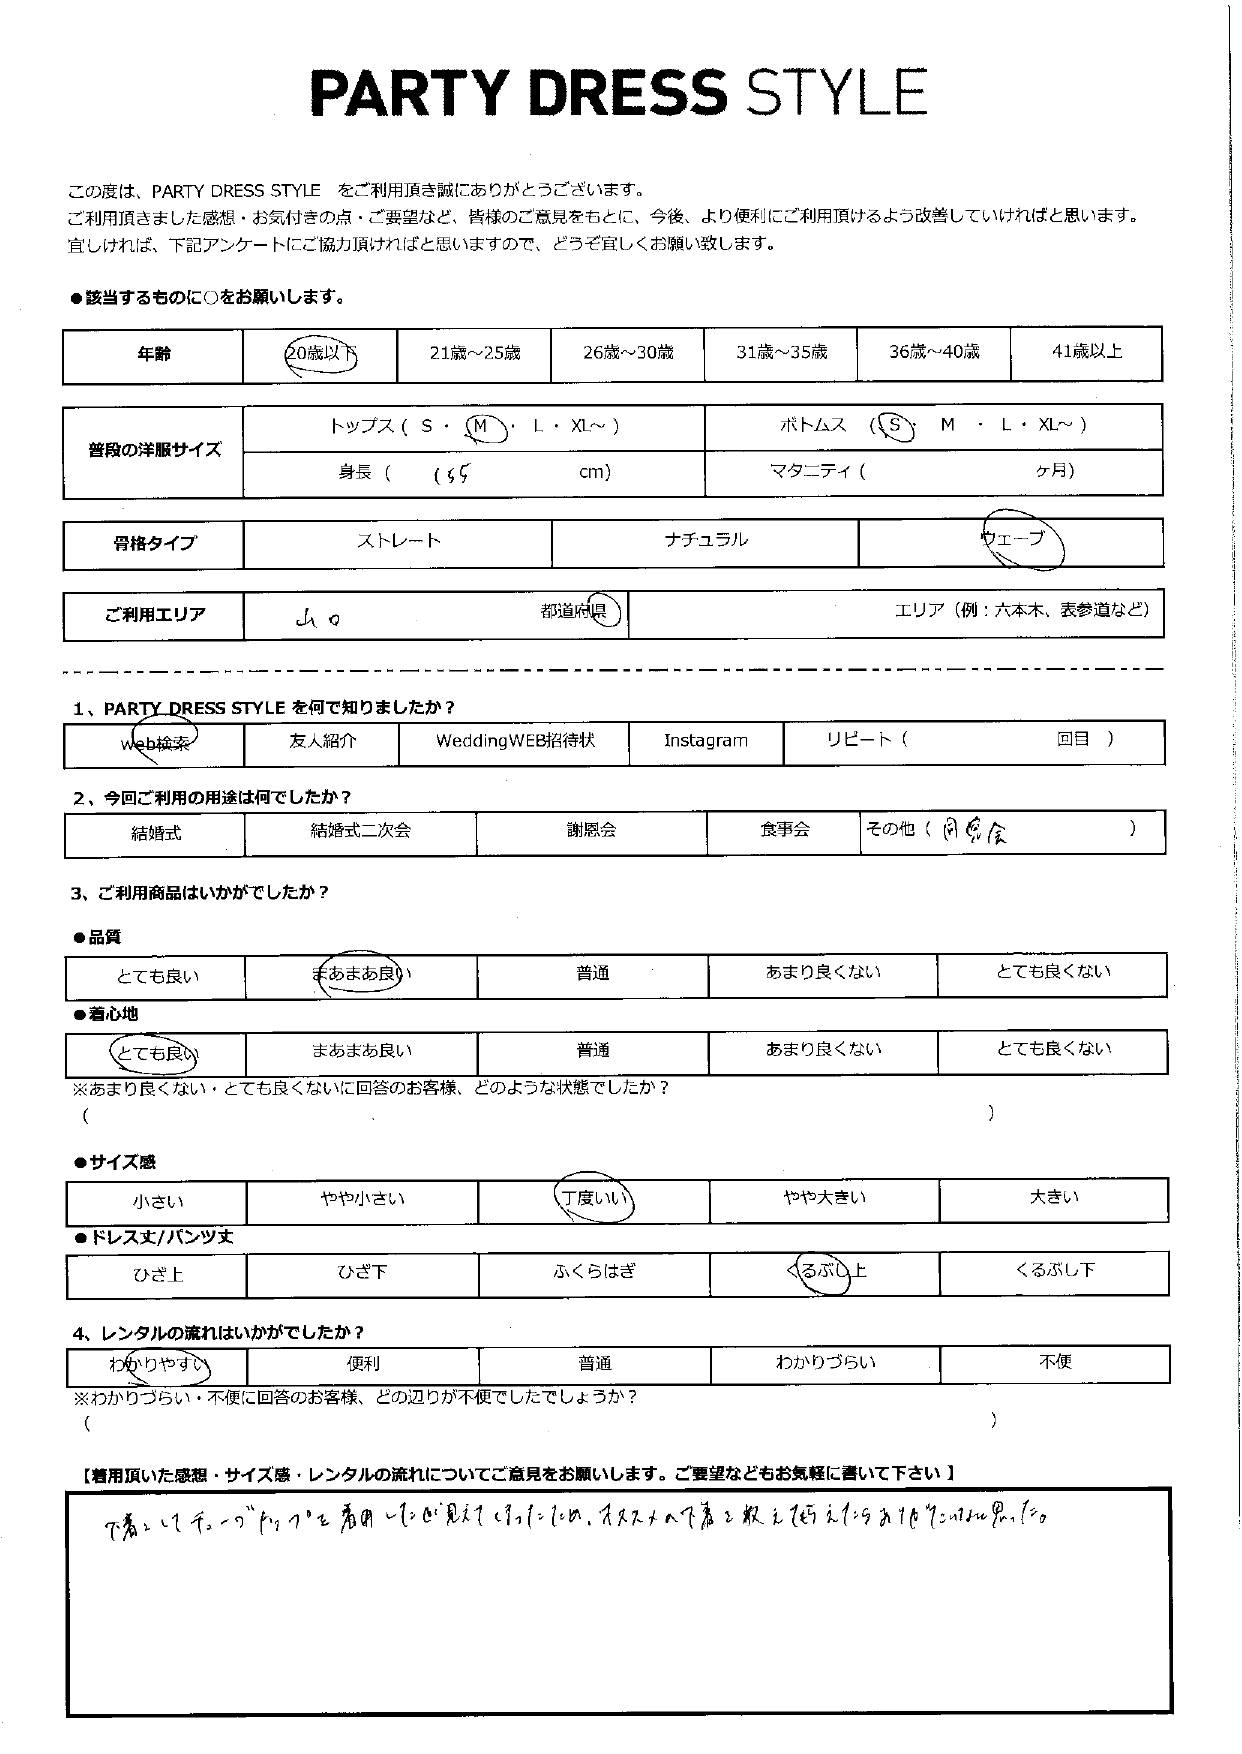 PARTY DRESS STYLE
この度は、PARTY DRESS STYLE をご利用頂き誠にありがとうございます。
ご利用頂きました感想・お気付きの点・ご要望など、皆様のご意見をもとに、今後、より便利にご利用頂けるよう改善していければと思います。
宜しければ、下記アンケートにご協力頂ければと思いますので、どうぞ宜しくお願い致します。
●該当するものに○をお願いします。
年齢 20歳以下 21歳～25歳 26歳～30歳 31歳～35歳 36歳～40歳 41歳以上
普段の洋服サイズ
トップス ( S ・ M ・ L ・ XL～ ) ボトムス ( S ・ M ・ L ・ XL～ )
身長 ( 155 cm) マタニティ ( ヶ月)
骨格タイプ ストレート ナチュラル ウェーブ
ご利用エリア 山口 都道府県 エリア（例：六本木、表参道など）
1、PARTY DRESS STYLE を何で知りましたか？
web検索 友人紹介 WeddingWEB招待状 Instagram リピート ( 回目 )
2、今回ご利用の用途は何でしたか？
結婚式 結婚式二次会 謝恩会 食事会 その他 ( 同窓会 )
3、ご利用商品はいかがでしたか？
●品質
とても良い まあまあ良い 普通 あまり良くない とても良くない
●着心地
とても良い まあまあ良い 普通 あまり良くない とても良くない
※あまり良くない・とても良くないに回答のお客様、どのような状態でしたか？
( )
●サイズ感
小さい やや小さい 丁度いい やや大きい 大きい
●ドレス丈/パンツ丈
ひざ上 ひざ下 ふくらはぎ くるぶし上 くるぶし下
4、レンタルの流れはいかがでしたか？
わかりやすい 便利 普通 わかりづらい 不便
※わかりづらい・不便に回答のお客様、どの辺りが不便でしたでしょうか？
( )
【着用頂いた感想・サイズ感・レンタルの流れについてご意見をお願いします。ご要望などもお気軽に書いて下さい】
下着としてチューブトップを着用したが見えてしまったため、オススメの下着を教えて貰えたらありがたいなと思った。